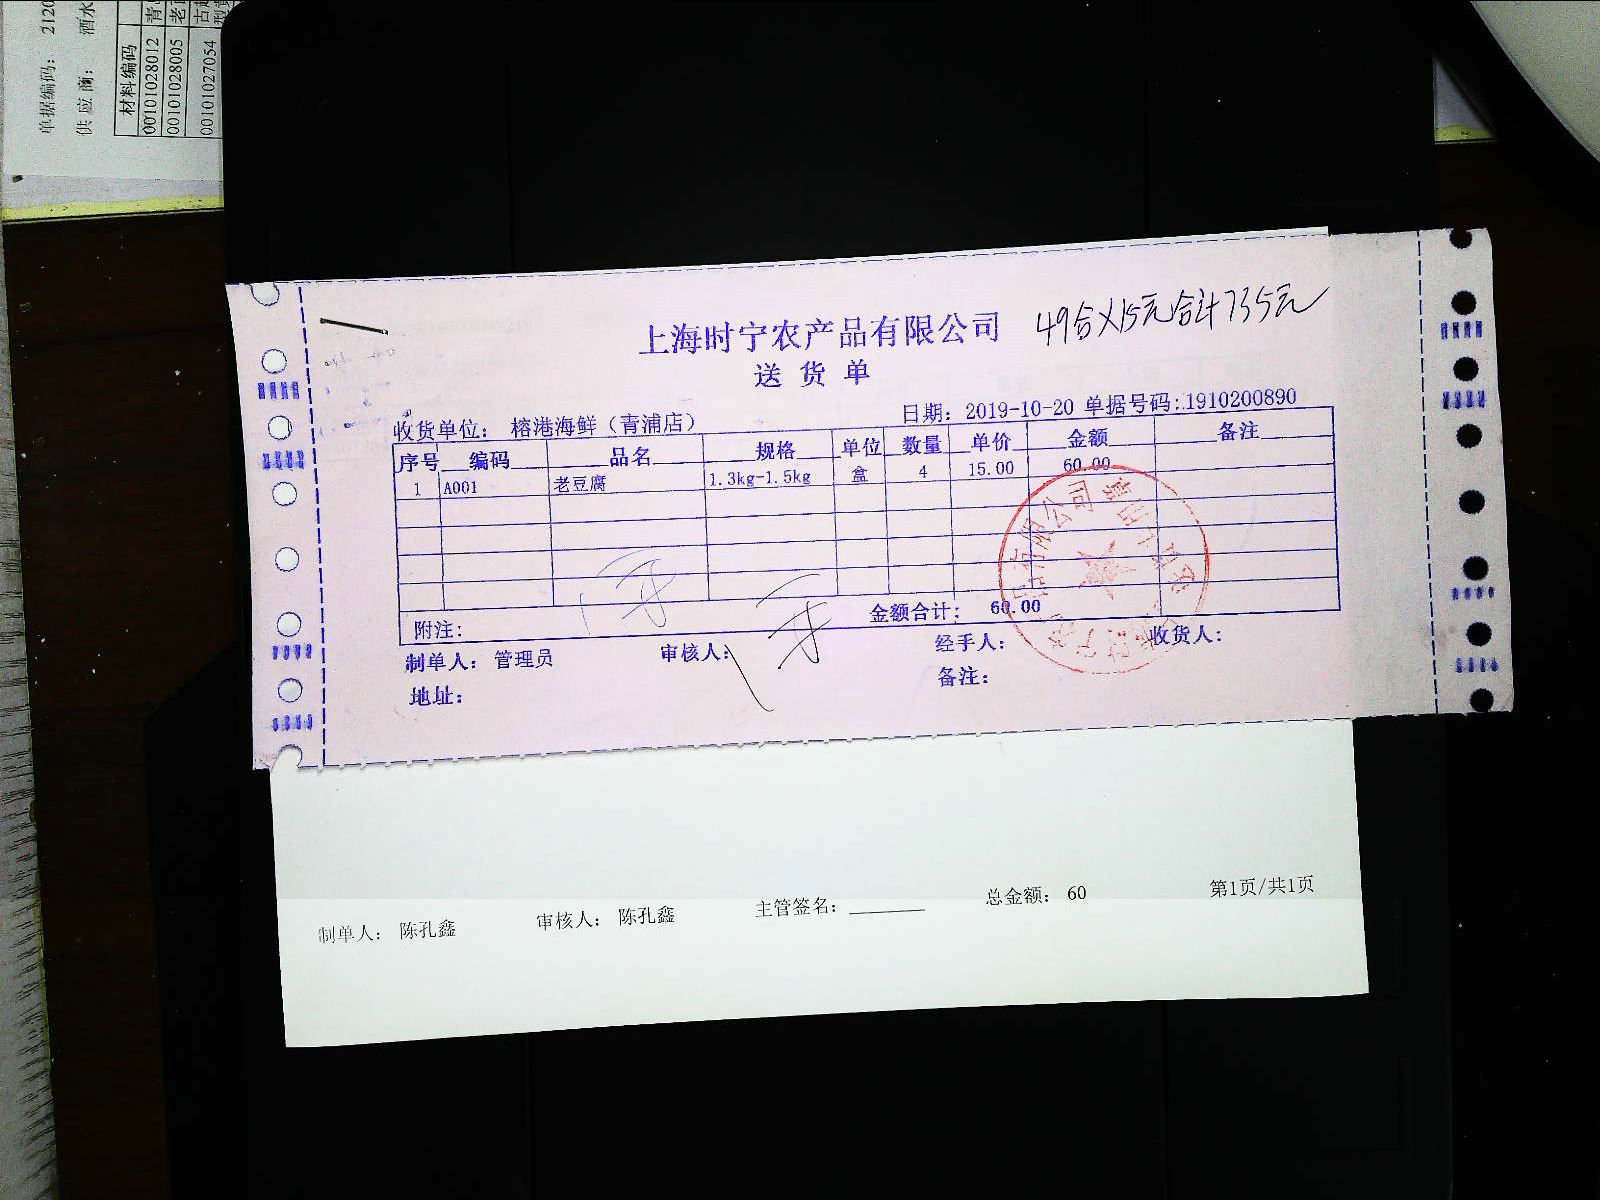 单据编码： 2120
供 应 商： 酒水
材料编码
00101028012 青
00101028005 老
00101027054 古
上海时宁农产品有限公司
49合X15元合计735元
送 货 单
收货单位： 榕港海鲜（青浦店）
日期：2019-10-20 单据号码：1910200890
序号 编码 品名 规格 单位 数量 单价 金额 备注
1 A001 老豆腐 1.3kg-1.5kg 盒 4 15.00 60.00
附注： 金额合计： 60.00
制单人：管理员 审核人： 经手人： 收货人：
地址： 备注：
制单人： 陈孔鑫 审核人： 陈孔鑫 主管签名： 总金额： 60 第1页/共1页